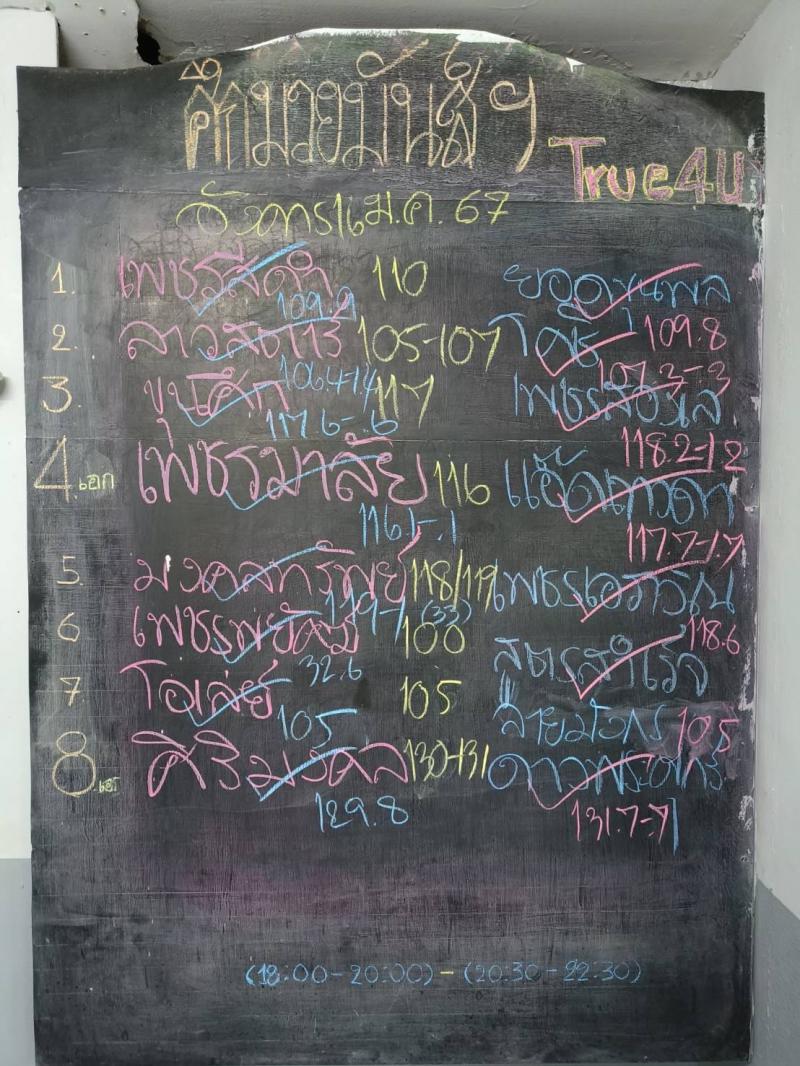 ศึกมวยมันส์ฯ
True4U
อังคาร ม.ค. 67
1. เพชรสีดำ 110 ยอดขุนพล
109.9
2. ลาวสตาร์ 105-107 โตชิ 109.8
106.4-1.4 107.3-.3
3. ขุนศึก 117
117.6-.6
118.2-1.2
4.เอก เพชรมาลัย 116
116.1-.1
117.7-1.7
5. มงคลทรัพย์ 118/119 เพชรเอกวิน
119-1 (33)
6 เพชรพยัคฆ์ 100 สูตรสำเร็จ 118.6
32.6
7 โอเล่ย์ 105 ลายมังกร 105
105
8.เอก ศิริมงคล 130-131
129.8
131.7-.7
(18:00-20:00) - (20:30-22:30)